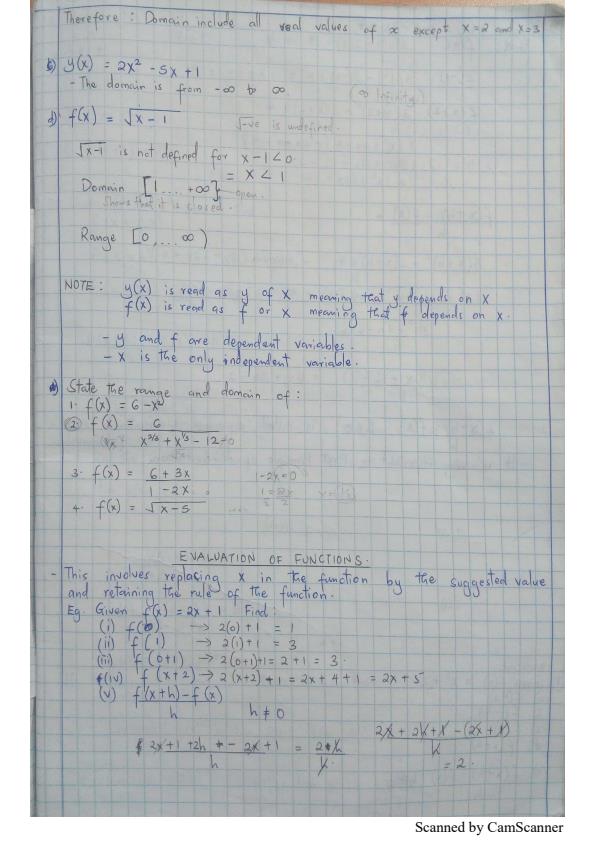 Therefore : Domain include all real values of x except x=2 and x=3
b) y(x) = 2x² - 5x + 1
- The domain is from -∞ to ∞ (∞ Infinity)
d) f(x) = √x - 1
√-ve is undefined.
√x-1 is not defined for x-1<0
= x < 1
Domain [1 .... +∞} open
Shows that it is closed.
Range [0, ... ∞)
NOTE : y(x) is read as y of x meaning that y depends on x
f(x) is read as f or x meaning that f depends on x.
- y and f are dependent variables.
- x is the only independent variable.
State the range and domain of :
1. f(x) = 6 - x²
2. f(x) = 6
x^2/3 + x^1/3 - 12=0
3. f(x) = 6 + 3x 1-2x=0
1 - 2x
4. f(x) = √x - 5
EVALUATION OF FUNCTIONS.
- This involves replacing x in the function by the suggested value
and retaining the rule of the function.
Eg. Given f(x) = 2x + 1 Find :
(i) f(0) → 2(0) + 1 = 1
(ii) f(1) → 2(1) + 1 = 3
(iii) f(0+1) → 2(0+1)+1 = 2 + 1 = 3.
(iv) f(x+2) → 2(x+2) + 1 = 2x + 4 + 1 = 2x + 5
(v) f(x+h) - f(x)
h h ≠ 0
2x + 2h + 1 - (2x + 1)
h
2x + 1 + 2h - 2x + 1 = 2h
h h
= 2.
Scanned by CamScanner